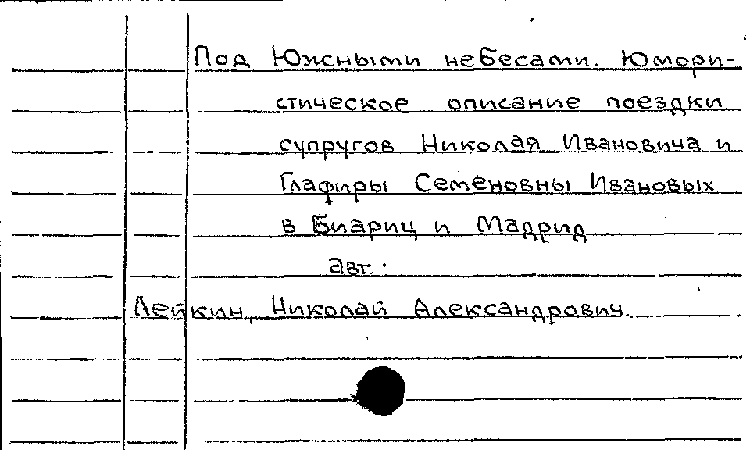 Под Южными небесами. Юмори-
стическое описание поездки
супругов Николая Ивановича и
Глафиры Семеновны Ивановых
в Биариц и Мадрид
авт.:
Лейкин, Николай Александрович.